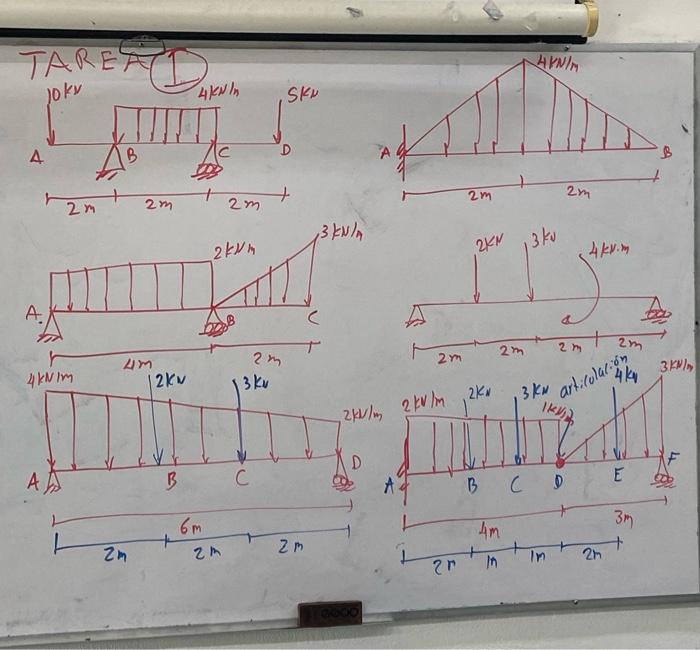 TAREA I
10KN
4KN/m
5KN
A
B
C
D
2m
2m
2m
4KN/m
A
B
2m
2m
2KN/m
3KN/m
A
B
C
4m
2m
2KN
3KN
4KN.m
2m
2m
2m
2m
4KN/m
2KN
3KN
2KN/m
A
B
C
D
6m
2m
2m
2m
2KN/m
2KN
3KN
articulación
1KN/m
4KN
3KN/m
A
B
C
D
E
F
4m
3m
2m
1m
1m
2m